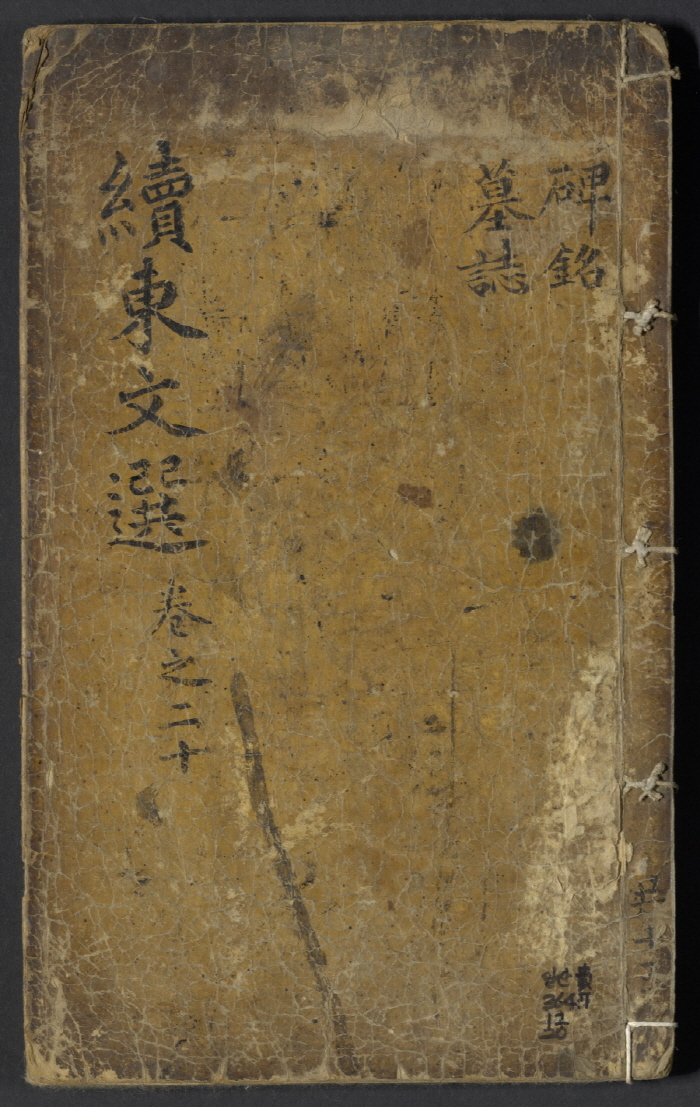 碑銘
墓誌
續東文選 卷之二十